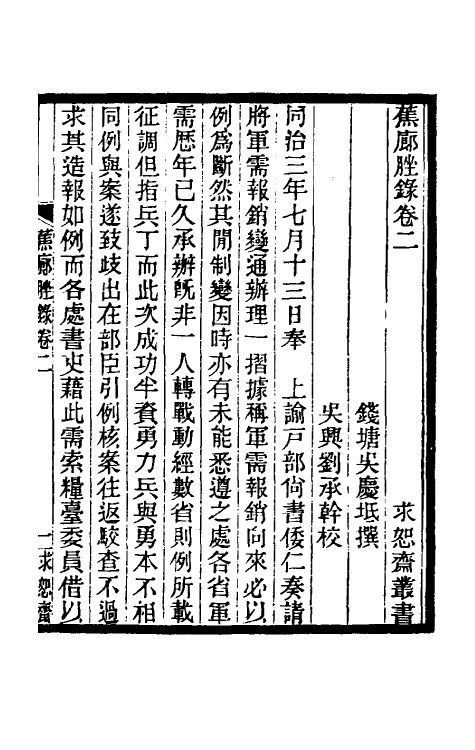 蕉廊脞錄卷二　求恕齋叢書
錢塘吳慶坻撰
吳興劉承幹校
同治三年七月十三日奉　上諭戸部尙書倭仁奏請
將軍需報銷變通辦理一摺據稱軍需報銷向來必以
例爲斷然其閒制變因時亦有未能悉遵之處各省軍
需歷年已久承辦旣非一人轉戰動經數省則例所載
征調但指兵丁而此次成功半資勇力兵與勇本不相
同例與案遂致歧出在部臣引例核案往返駮查不過
求其造報如例而各處書吏藉此需索糧臺委員借以
蕉廊脞錄卷二　一　求恕齋